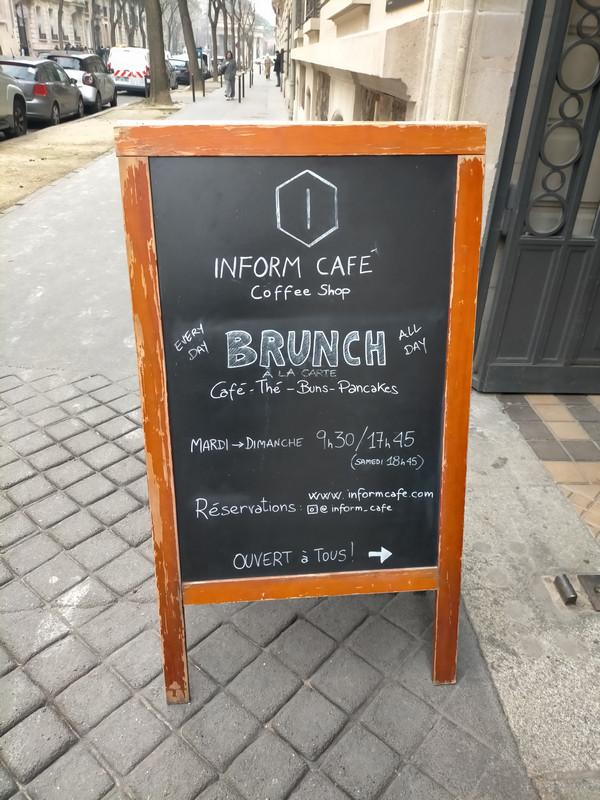 I
INFORM CAFÉ
Coffee Shop
EVERY DAY
BRUNCH
ALL DAY
À LA CARTE
Café - Thé - Buns - Pancakes
MARDI → DIMANCHE 9h30/17h45
(SAMEDI 18h45)
www.informcafe.com
Réservations : @inform_cafe
OUVERT à TOUS! →